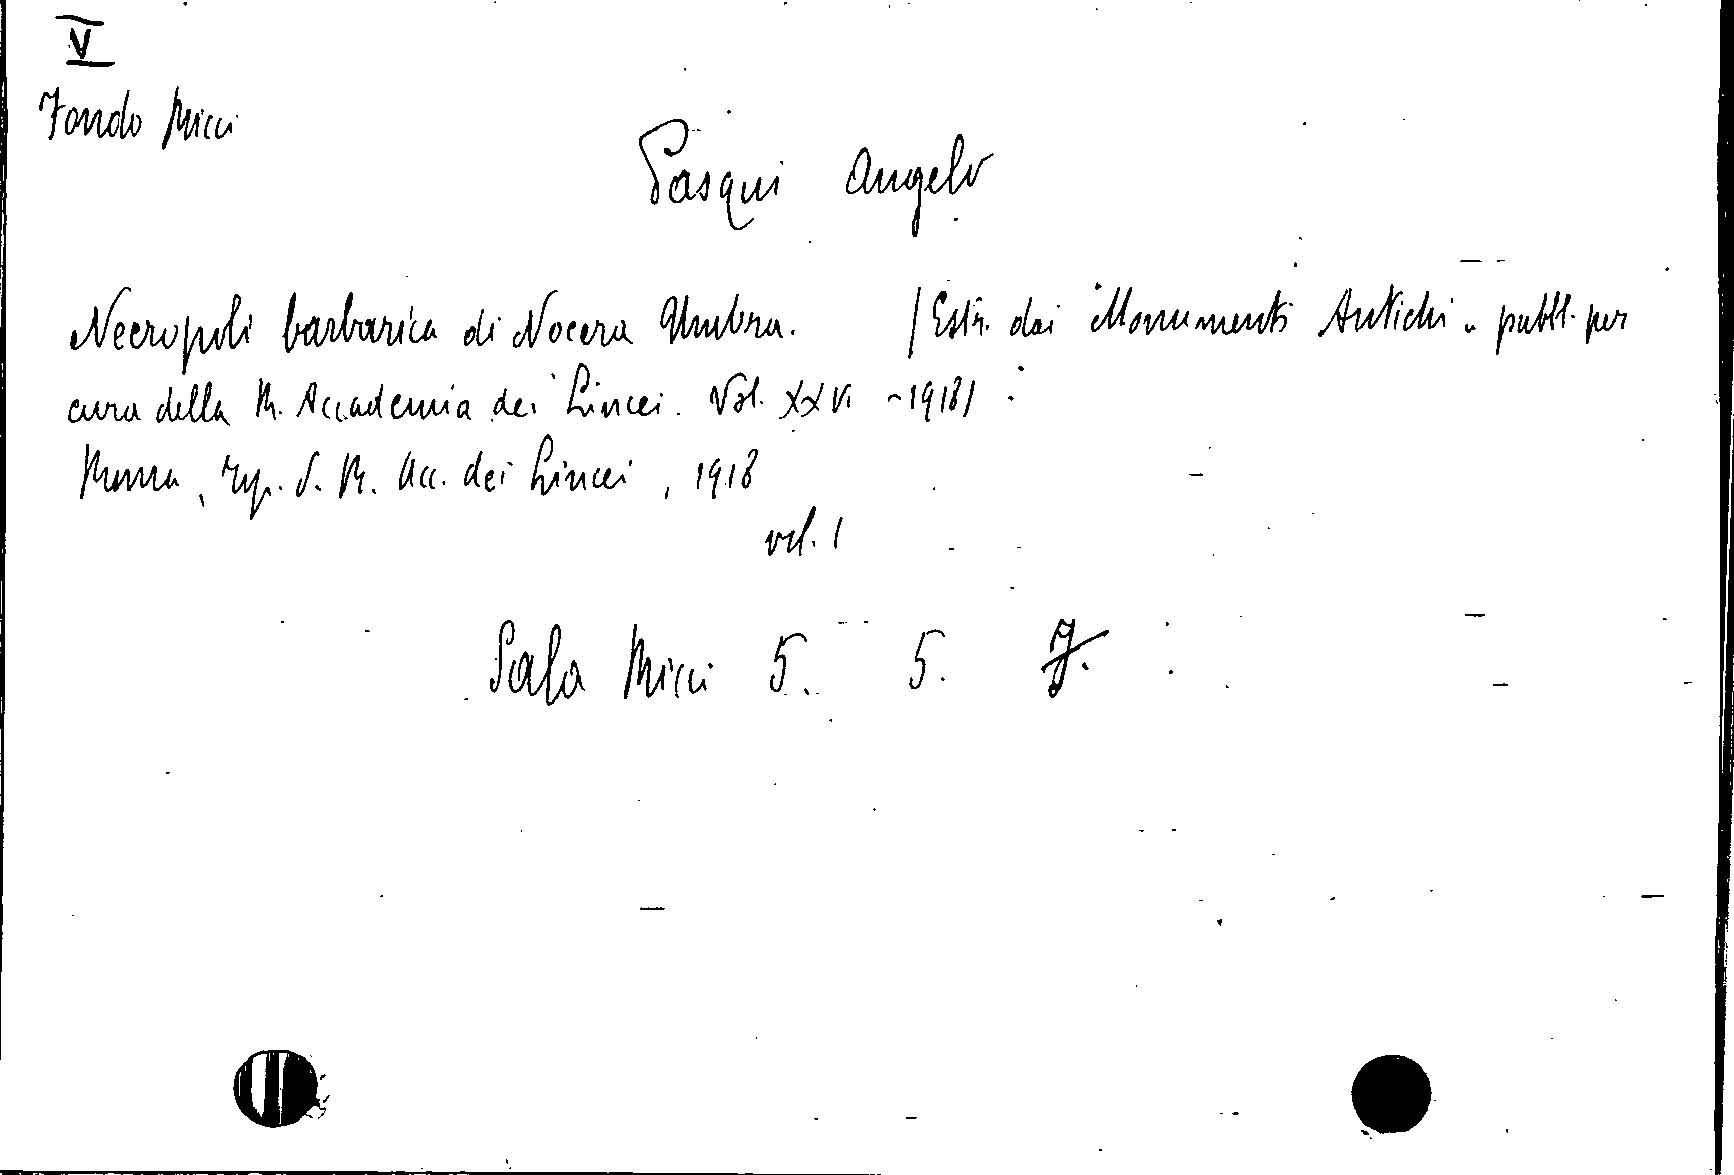 V
Fondo Micci
Pasqui Angelo
Necropoli barbarica di Nocera Umbra. /Estr. dai "Monumenti Antichi" pubbl. per
cura della R. Accademia dei Lincei. Vol. XXV. - 1918/
Roma, Tip. d. R. Acc. dei Lincei, 1918
vol. 1
Sala Micci 5. 5. 7.